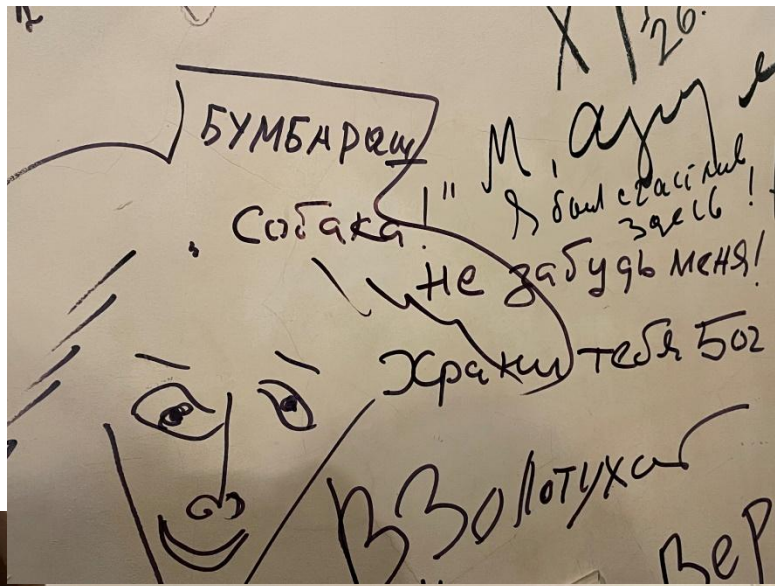 XI '26.
БУМБАРАШ
„Собака!"
М,
Я был счастлив
здесь!
Не забудь меня!
Храни тебя Бог
В Золотух
Вер